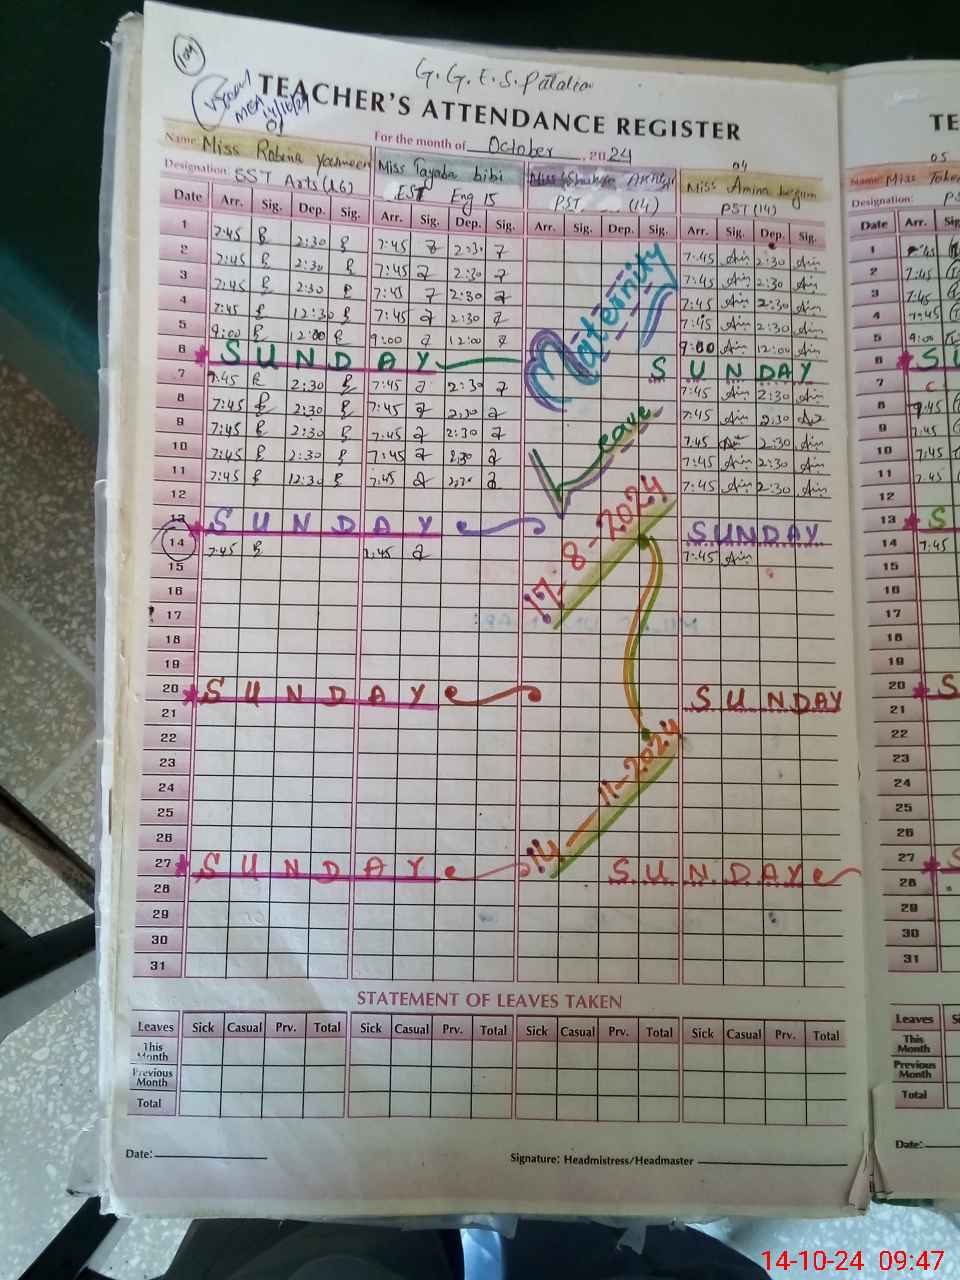 104
G. G. E. S. Patalian
TEACHER'S ATTENDANCE REGISTER
TE
MEA 14/10/24
01
For the month of October, 2024
04
05
Name: Miss Robina Yasmeen Miss Tayaba bibi Miss Amina begum Name: Miss
Designation: SST Arts (16) EST Eng 15 PST (14) PST (14) Designation: PS
Date Arr. Sig. Dep. Sig. Arr. Sig. Dep. Sig. Arr. Sig. Dep. Sig. Arr. Sig. Dep. Sig. Date Arr. Sig.
1 7:45 2:30 7:45 2:30 7:45 2:30 1
2 7:45 2:30 7:45 2:30 7:45 2:30 2 7:45
3 7:45 2:30 7:45 2:30 7:45 2:30 3 7:45
4 7:45 12:30 7:45 2:30 7:45 2:30 4 7:45
5 9:00 12:00 9:00 12:00 9:00 12:00 5 9:00
6 SUNDAY SUNDAY 6 SU
7 7:45 2:30 7:45 2:30 7:45 2:30 7 C
8 7:45 2:30 7:45 2:30 7:45 2:30 8 7:45
9 7:45 2:30 7:45 2:30 7:45 2:30 9 7:45
10 7:45 2:30 7:45 2:30 7:45 2:30 10 7:45
11 7:45 12:30 7:45 7:45 2:30 11 7:45
12 12
13 SUNDAY SUNDAY 13 S
14 7:45 7:45 7:45 14 7:45
15 15
16 16
17 17
18 18
19 19
20 SUNDAY SUNDAY 20 S
21 21
22 22
23 23
24 24
25 25
26 26
27 SUNDAY SUNDAY 27 S
28 28
29 29
30 30
31 31
Maternity
Leave
17-8-2024
14-11-2024
STATEMENT OF LEAVES TAKEN
Leaves Sick Casual Prv. Total Sick Casual Prv. Total Sick Casual Prv. Total Sick Casual Prv. Total Leaves
This Month This Month
Previous Month Previous Month
Total Total
Date: Signature: Headmistress/Headmaster Date:
14-10-24 09:47